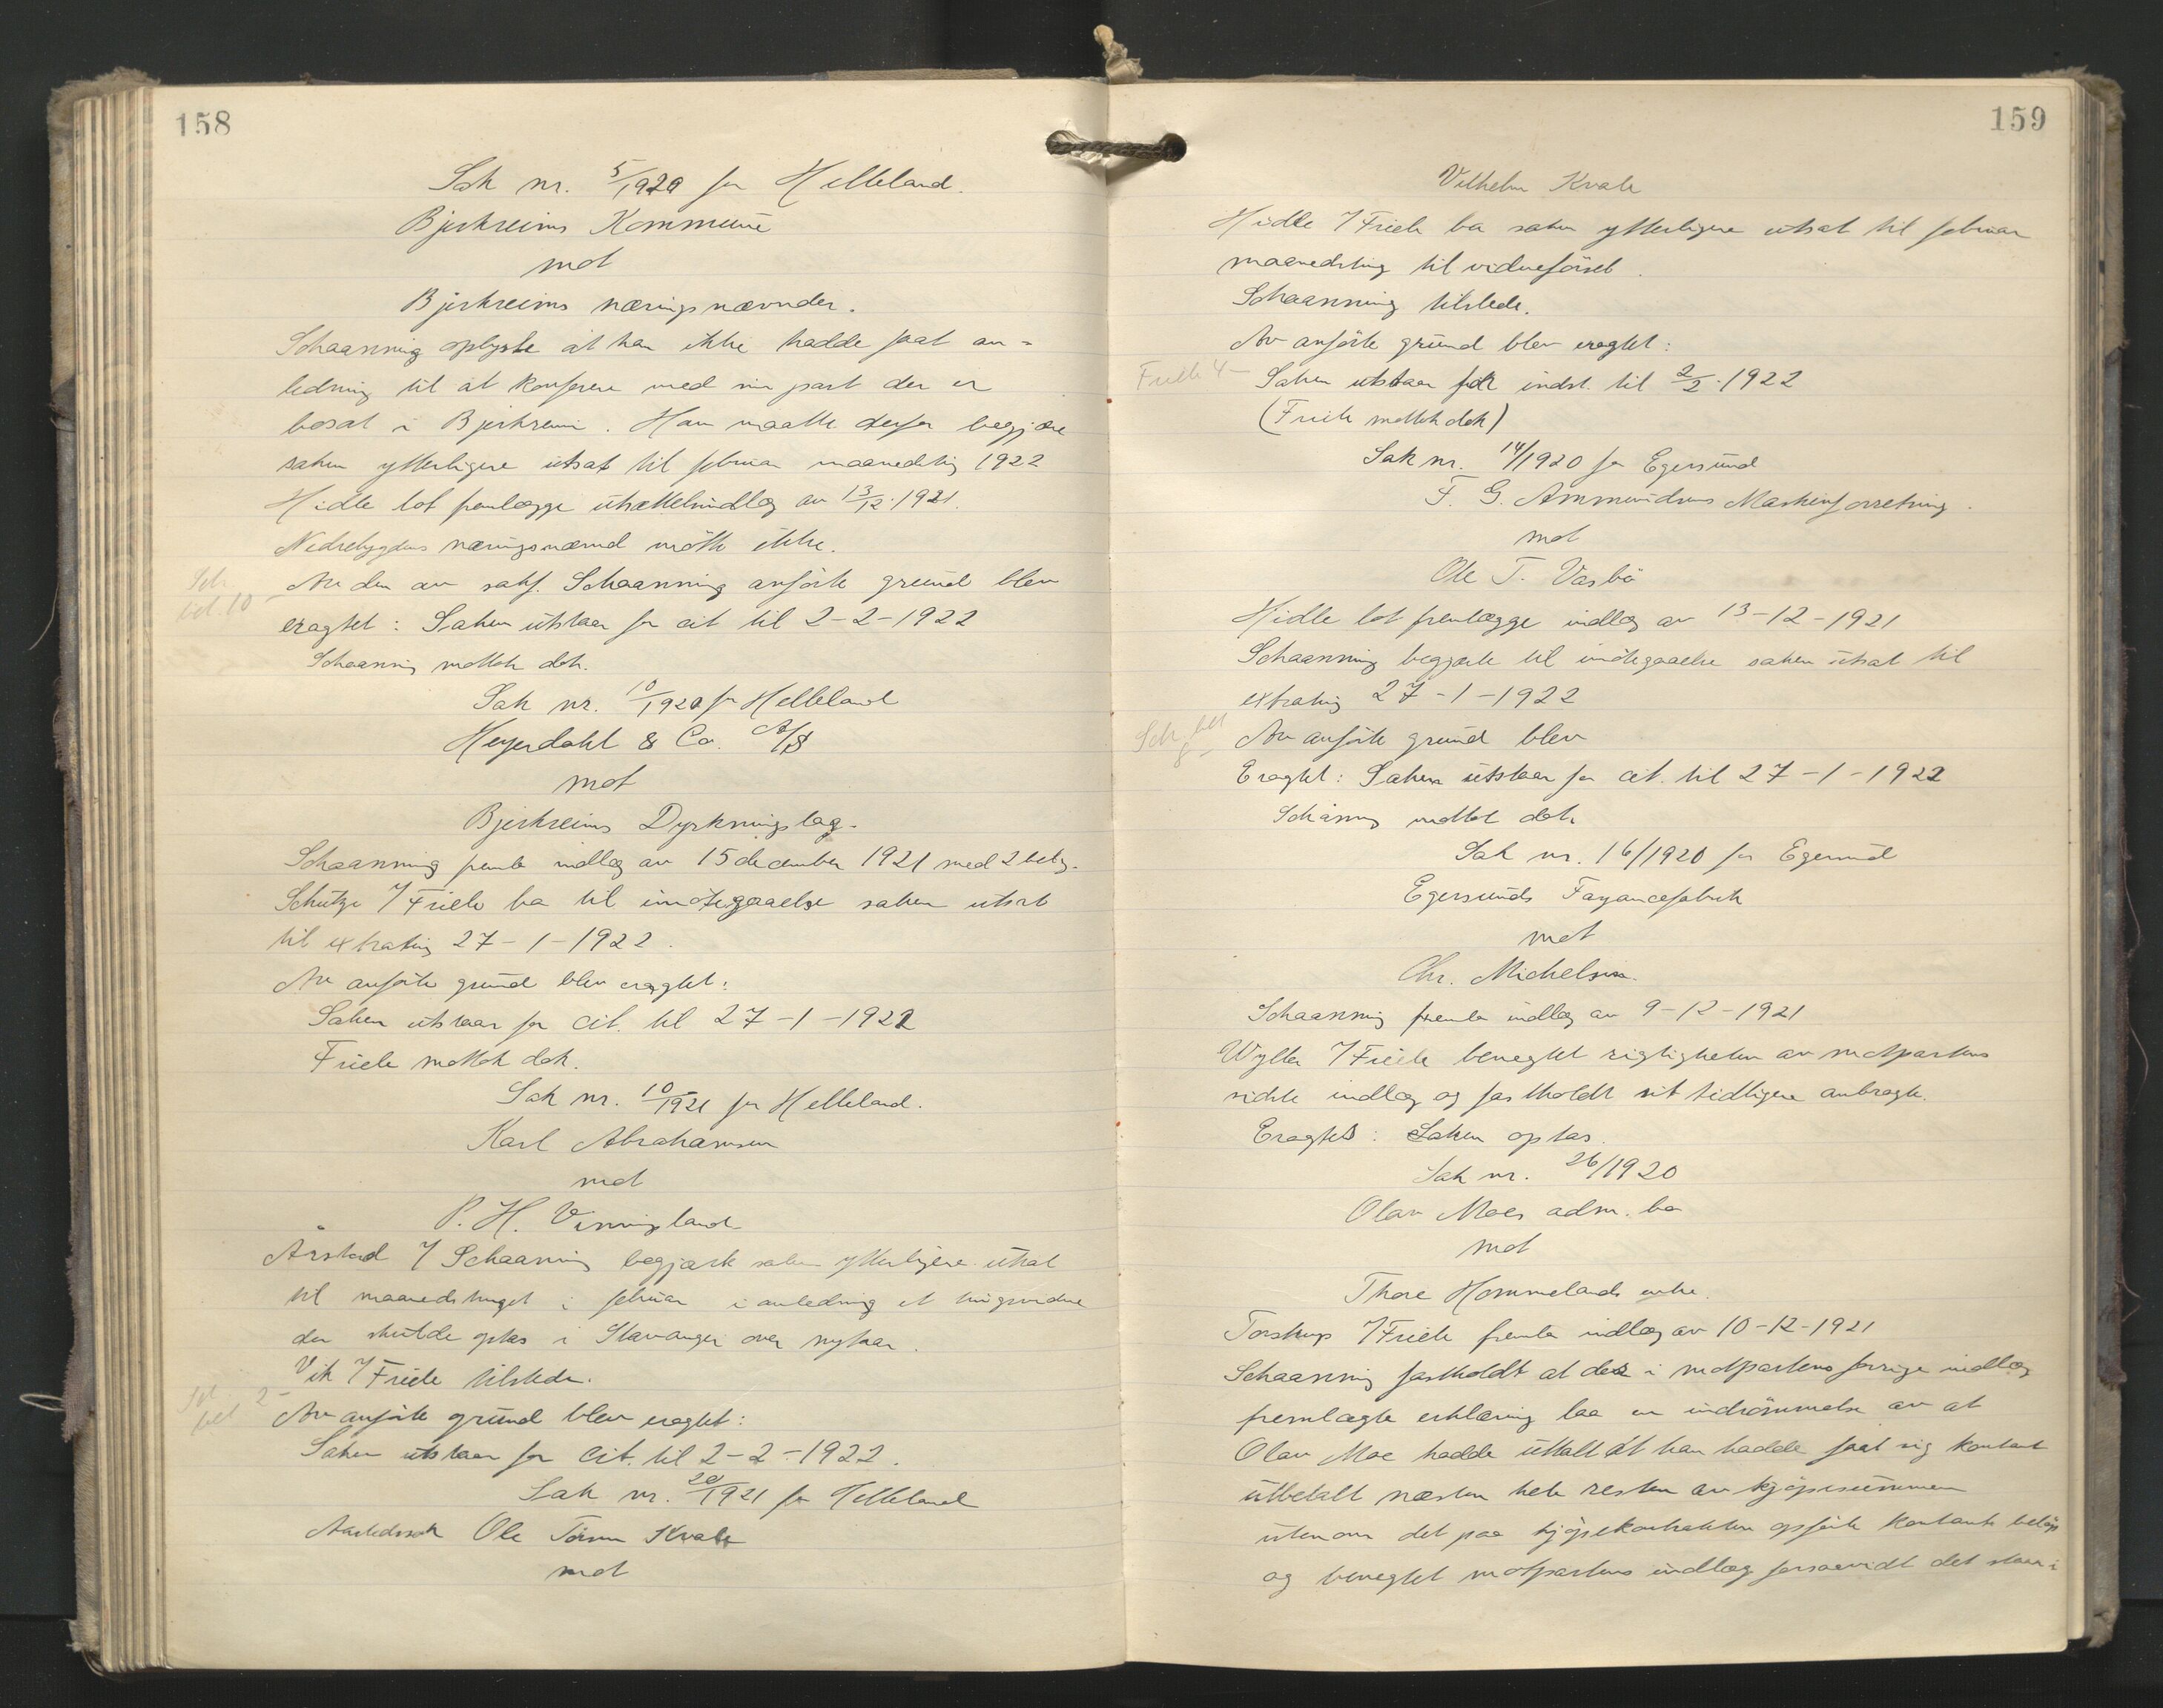 158
Sak nr. 5/1920 for Helleland.
Bjerkreims Kommune
mot
Bjerkreims næringsnævnder.
Schaanning oplyste at han ikke hadde faat an=
ledning til at konferere med sin part der er
bosat i Bjerkreim. Han maatte derfor begjære
saken ytterligere utsat til februar maanedsting 1922
Hidle lot fremlægge utsættelsindlæg av 13/12.1921.
Nedrebygdens næringsnævnd mötte ikke.
Sch.
bet. 10
Av den av sakf. Schaanning anförte grund blev
eragtet: Saken utstaar for cit til 2-2-1922
Schaanning mottok dok.
Sak nr. 10/1920 for Helleland
Heyerdahl & Co. A/S
mot
Bjerkreims Dyrkningslag.
Schaanning fremla indlæg av 15 december 1921 med 2 bilag.
Schütze / Friele ba til imötegaaelse saken utsat
til extrating 27-1-1922.
Av anförte grund blev eragtet:
Saken utstaar for cit. til 27-1-1922
Friele mottok dok.
Sak nr. 10/1921 for Helleland.
Karl Abrahamsen
mot
P. H. Vinningland
Årstad / Schaanning begjærte saken ytterligere utsat
til maanedstinget i februar i anledning et tingsvidne
der skulde optas i Stavanger over nytaar.
Vik / Friele tilstede.
Sch
bet 2-
Av anförte grund blev eragtet:
Saken utstaar for cit. til 2-2-1922.
Sak nr. 20/1921 for Helleland
Ole Törres Kvale
mot
159
Vilhelm Kvale
Hidle / Friele ba saken ytterligere utsat til februar
maanedsting til vidneförsel.
Schaanning tilstede.
Av anförte grund blev eragtet:
Friele 4-
Saken utstaar for indst. til 2/2.1922
(Friele mottok dok)
Sak nr. 14/1920 for Egersund
F. G. Ammundsens Maskinforretning.
mot
Ole T. Vasbö
Hidle lot fremlægge indlæg av 13-12-1921
Schaanning begjærte til imötegaaelse saken utsat til
extrating 27-1-1922
Sch. bet
8-
Av anförte grund blev
Eragtet: Saken utstaar for cit. til 27-1-1922
Schåning mottok dok
Sak nr. 16/1920 for Egersund
Egersunds Fayancefabrik
mot
Chr. Michelsen.
Schaanning fremla indlæg av 9-12-1921
Wyller / Friele benegtet rigtigheten av motpartens
sidste indlæg og fastholdt sit tidligere anbragte.
Eragtet: Saken optas.
Sak nr. 26/1920
Olav Moes adm. bo
mot
Thore Hommelands enke.
Torskup / Friele fremla indlæg av 10-12-1921
Schaanning fastholdt at der i motpartens forrige indlæg
fremlagte erklæring laa en indrömmelse av at
Olav Moe hadde uttalt at han hadde faat sig kontant
utbetalt næsten hele resten av kjöpesummen
utenom det paa kjöpekontrakten opförte kontante belöp
og benegtet motpartens indlæg forsaavidt det staar i